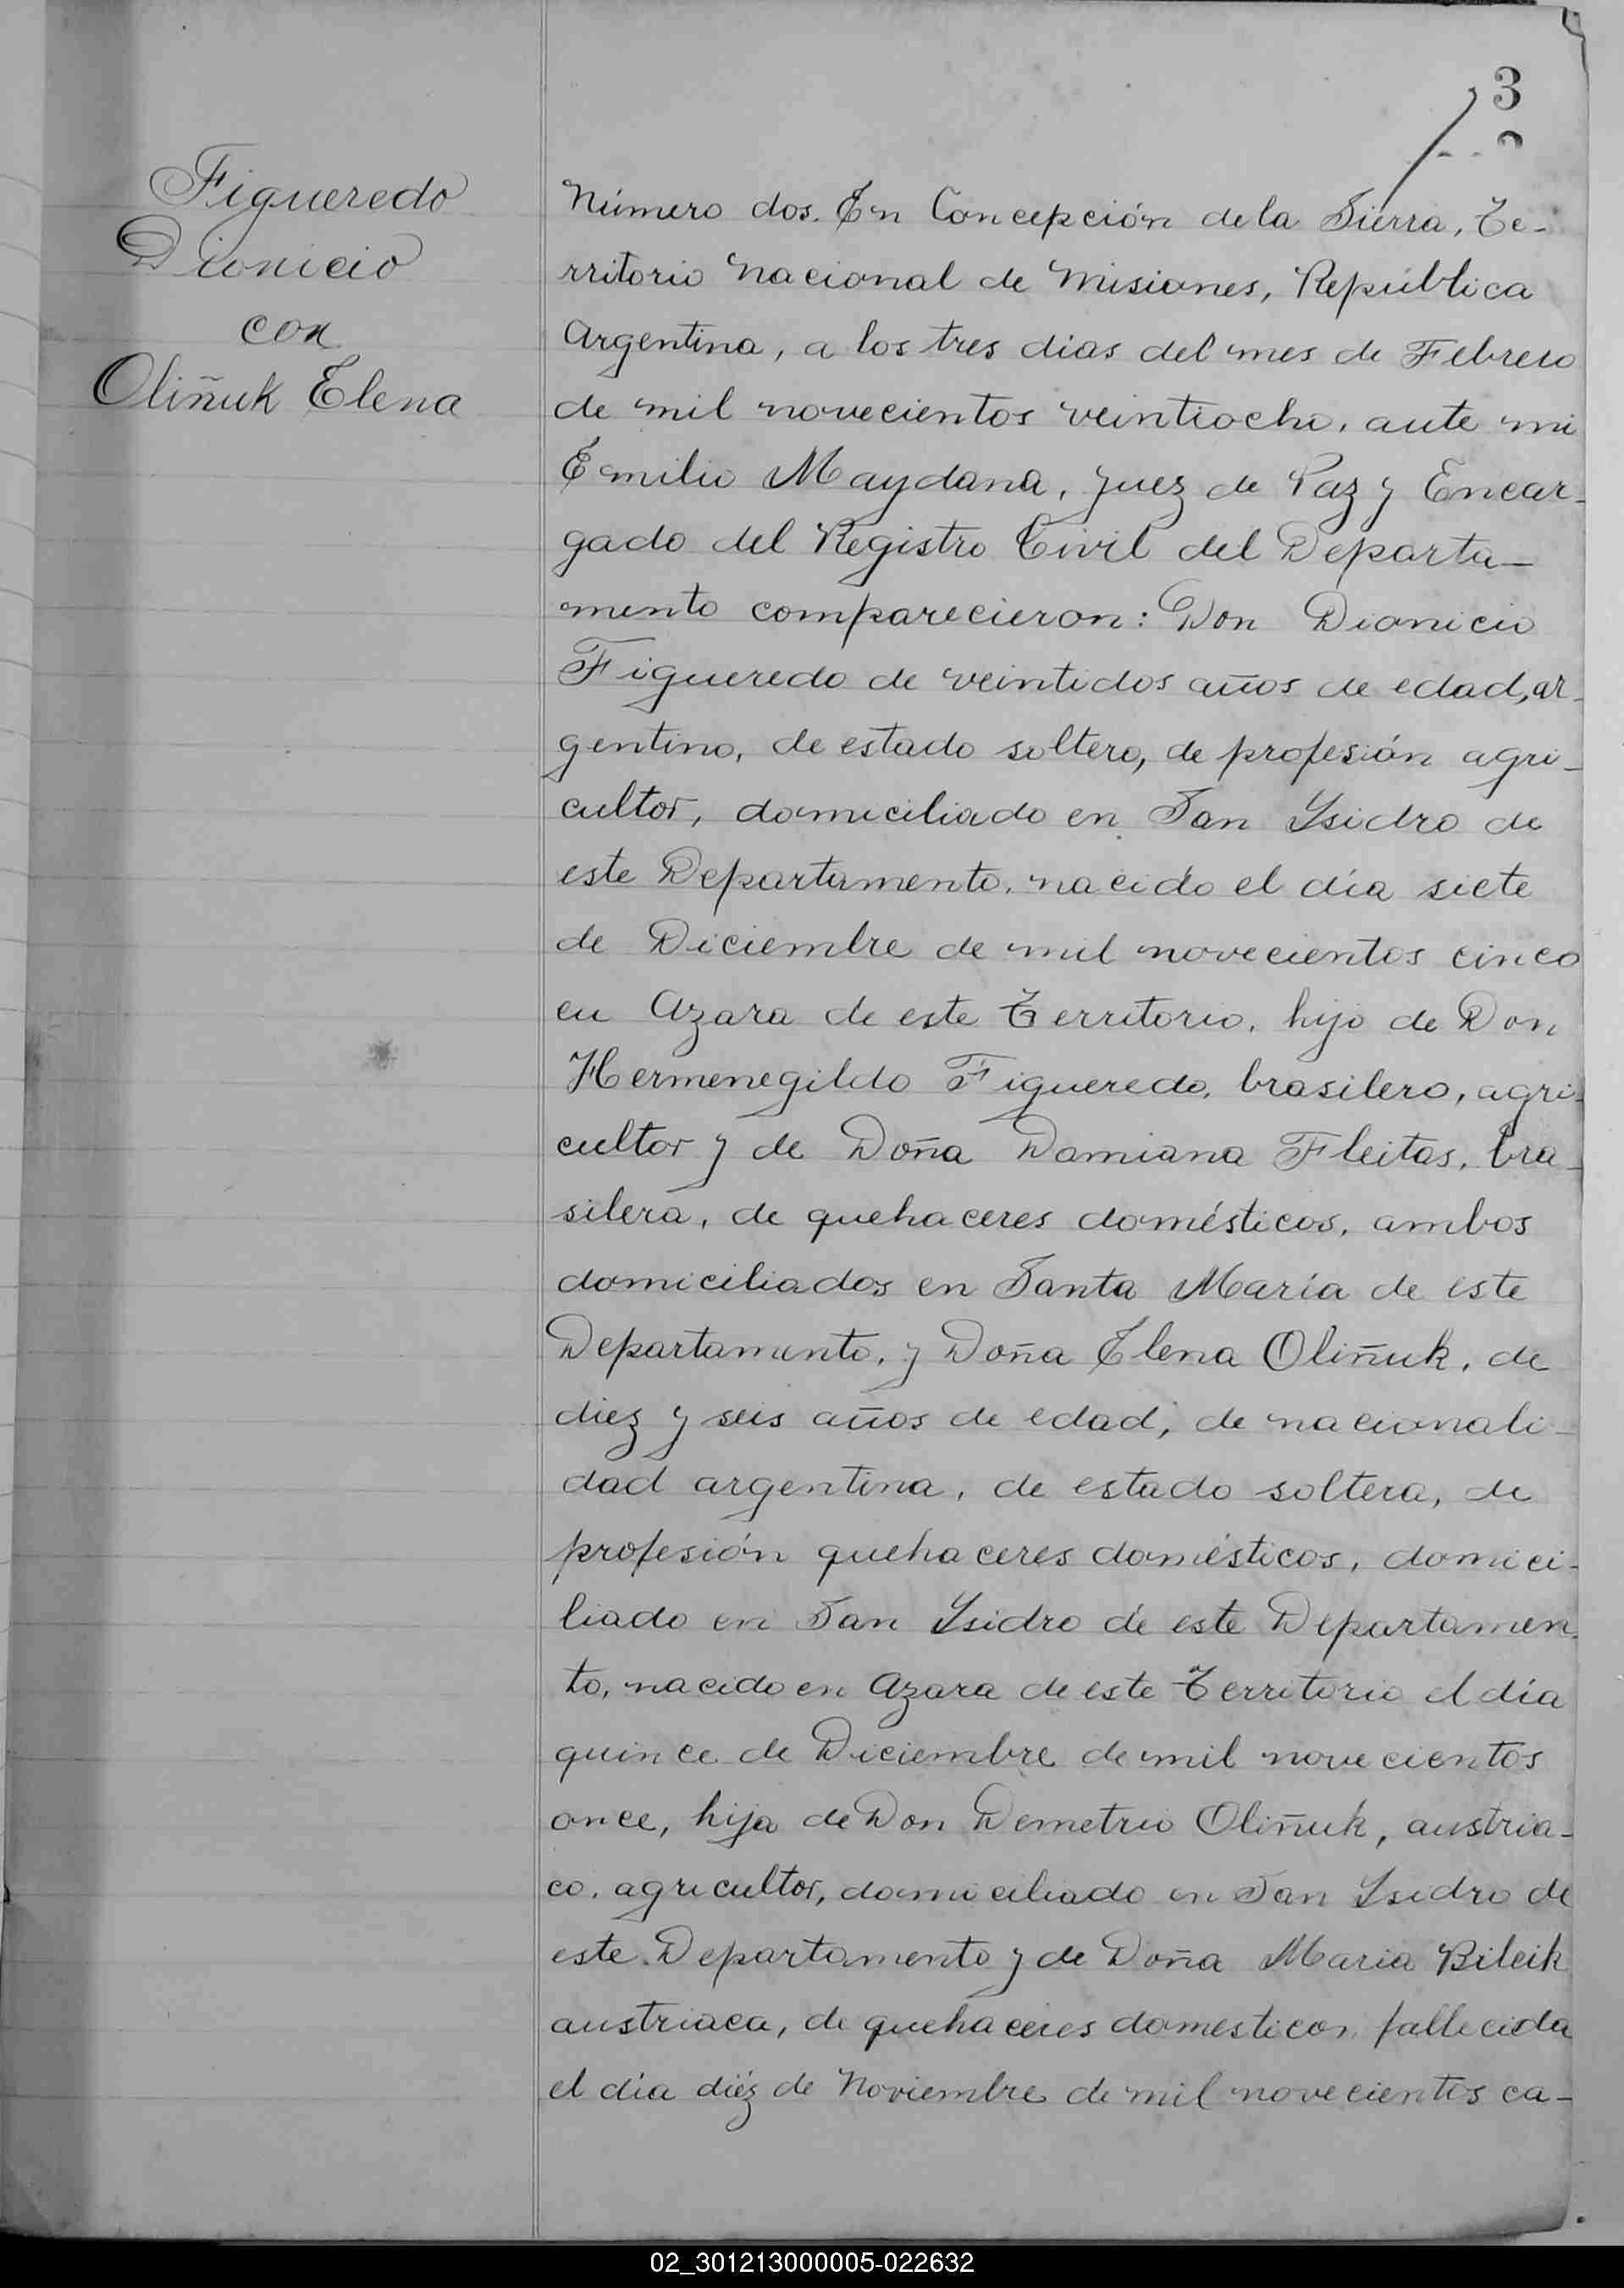 3
Figueredo
Dionicio
con
Oliñuk Elena
Número dos. En Concepción de la Sierra, Te-
rritorio Nacional de Misiones, República
Argentina, a los tres dias del mes de Febrero
de mil novecientos veintiocho, ante mi
Emilio Maydana, Juez de Paz y Encar-
gado del Registro Civil del Departa-
mento comparecieron: Don Dionicio
Figueredo de veintidos años de edad, ar-
gentino, de estado soltero, de profesión agri-
cultor, domiciliado en San Ysidro de
este Departamento, nacido el día siete
de Diciembre de mil novecientos cinco
en Azara de este Territorio, hijo de Don
Hermenegildo Figueredo, brasilero, agri-
cultor y de Doña Damiana Fleitas, bra-
silera, de quehaceres domésticos, ambos
domiciliados en Santa María de este
Departamento, y Doña Elena Oliñuk, de
diez y seis años de edad, de nacionali-
dad argentina, de estado soltera, de
profesión quehaceres domésticos, domici-
liado en San Ysidro de este Departamen-
to, nacido en Azara de este Territorio el día
quince de Diciembre de mil novecientos
once, hija de Don Demetrio Oliñuk, austria-
co, agricultor, domiciliado en San Ysidro de
este Departamento y de Doña Maria Bileik
austriaca, de quehaceres domesticos, fallecida
el día diéz de Noviembre de mil novecientos ca-
02_301213000005-022632